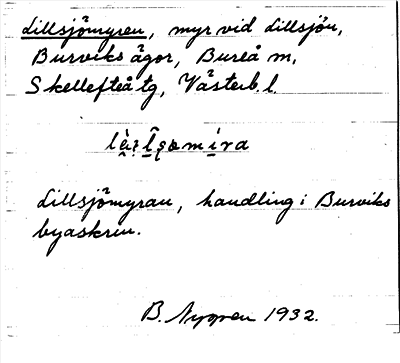 Lillsjömyren, myr vid Lillsjön,
Burviks ägor, Bureå sn,
Skellefteå tg, Västerb. l.
Lillsjömyran, handling i Burviks
byaskrin.
B. Nygren 1932.